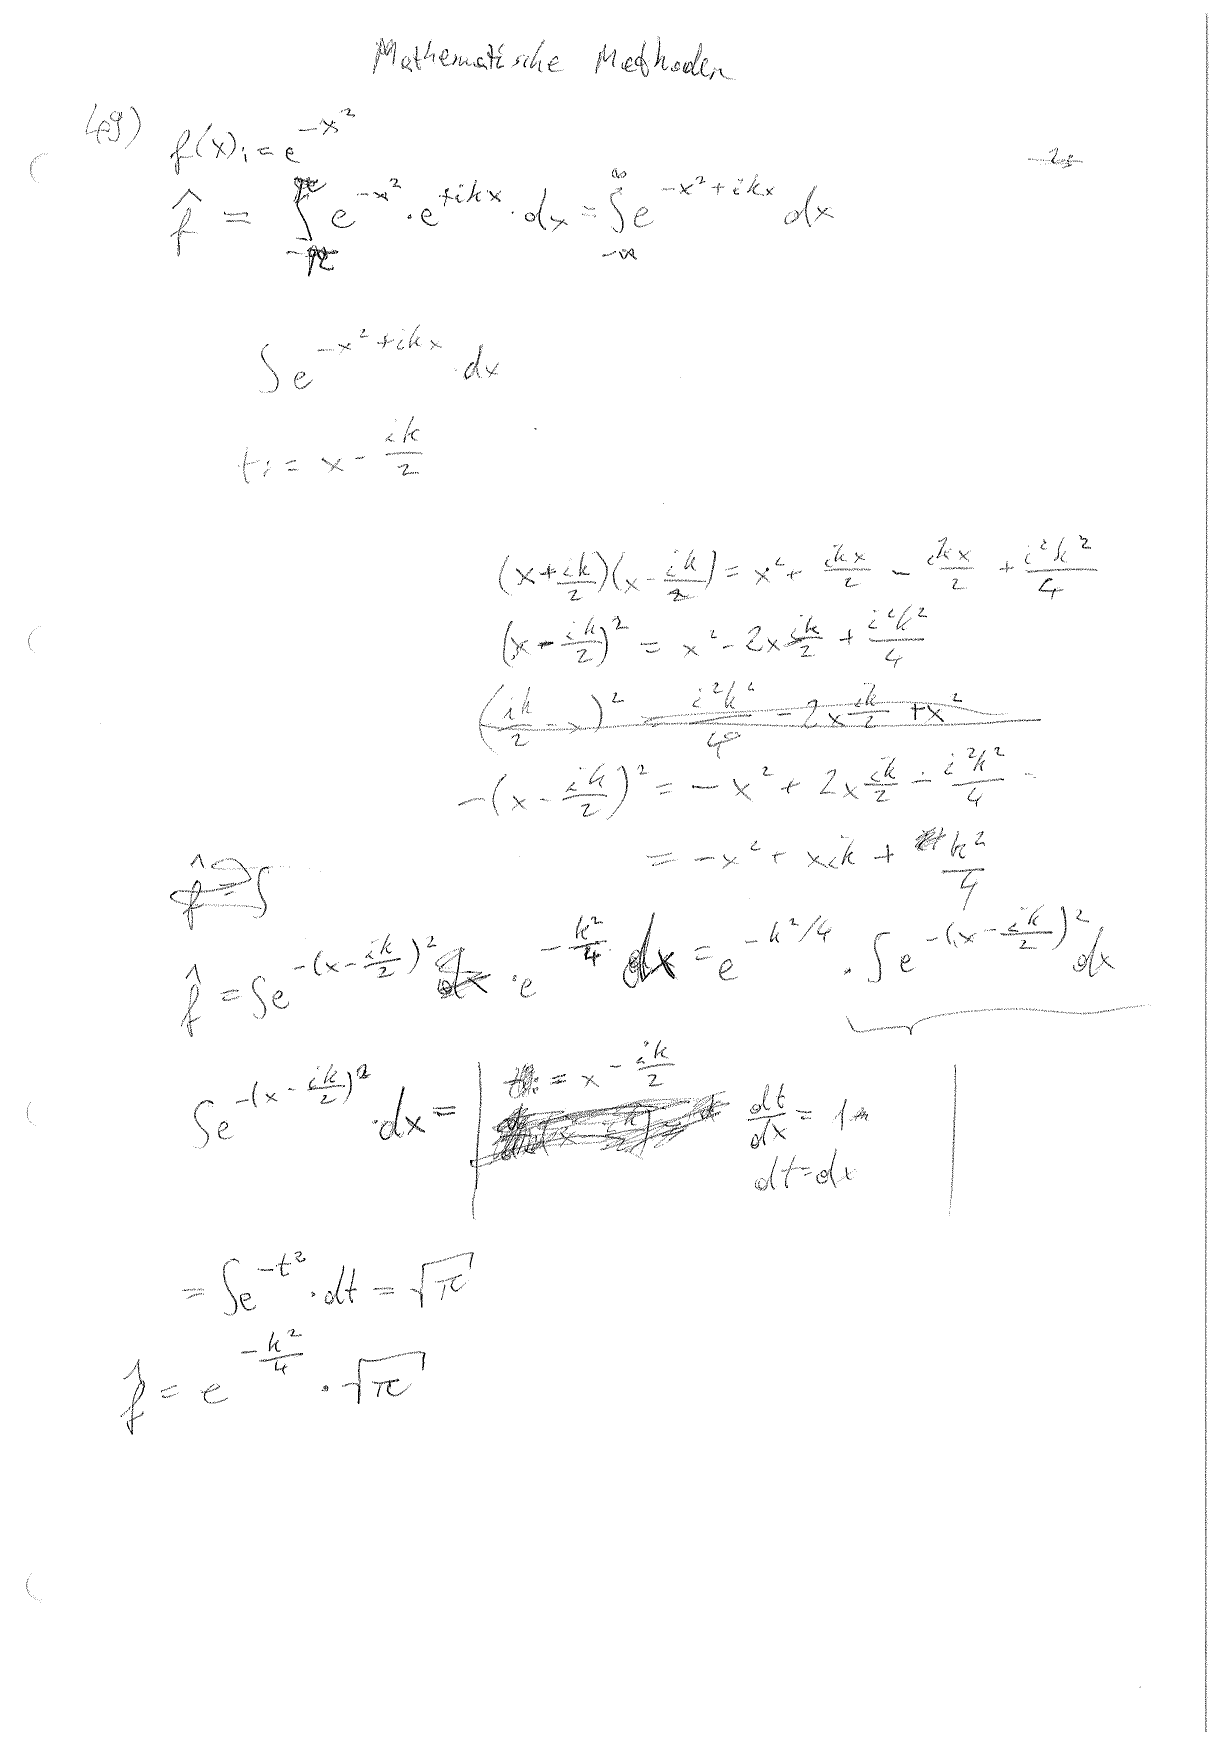 Mathematische Methoden
49)
f(x) := e^{-x^2}
f̂ = ∫ e^{-x^2} · e^{+ikx} · dx = ∫_{-∞}^{∞} e^{-x^2+ikx} dx
∫ e^{-x^2+ikx} · dx
t := x - ik/2
(x + ik/2)(x - ik/2) = x^2 + ikx/2 - ikx/2 + i^2k^2/4
(x - ik/2)^2 = x^2 - 2x ik/2 + i^2k^2/4
(ik/2 - x)^2 = i^2k^2/4 - 2x ik/2 + x^2
-(x - ik/2)^2 = -x^2 + 2x ik/2 - i^2k^2/4
= -x^2 + xik + k^2/4
f̂ = ∫
f̂ = ∫ e^{-(x - ik/2)^2} · e^{-k^2/4} dx = e^{-k^2/4} · ∫ e^{-(x - ik/2)^2} dx
∫ e^{-(x - ik/2)^2} · dx = | t := x - ik/2 dt/dx = 1 |
dt = dx
= ∫ e^{-t^2} · dt = √π
f̂ = e^{-k^2/4} · √π